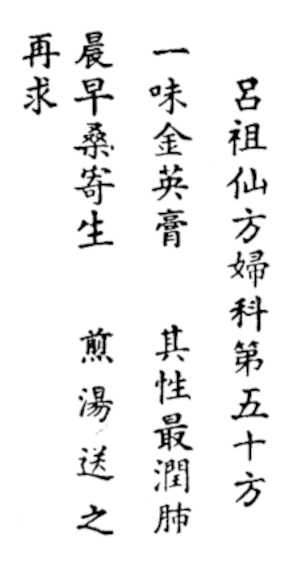 呂祖仙方婦科第五十方
一味金英膏　其性最潤肺
晨早桑寄生　煎湯送之
再求